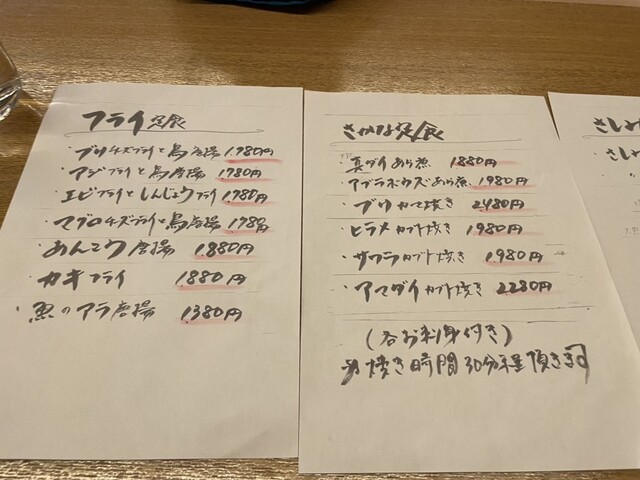 フライ定食
・ブリチーズフライと鳥唐揚 1.780円
・アジフライと鳥唐揚 1780円
・エビフライとしんじょうフライ 1.780円
・マグロチーズフライと鳥唐揚 1.780円
・あんこう唐揚 1.880円
・カキフライ 1.880円
・魚のアラ唐揚 1.380円
さかな定食
・真ダイあら煮 1880円
・アブラボウズあら煮 1.980円
・ブリカマ焼き 2.480円
・ヒラメカブト焼き 1.980円
・サワラカブト焼き 1.980円
・アマダイカブト焼き 2.280円
(各お刺身付き)
※焼き時間30分程頂きます
さしみ
・さしみ